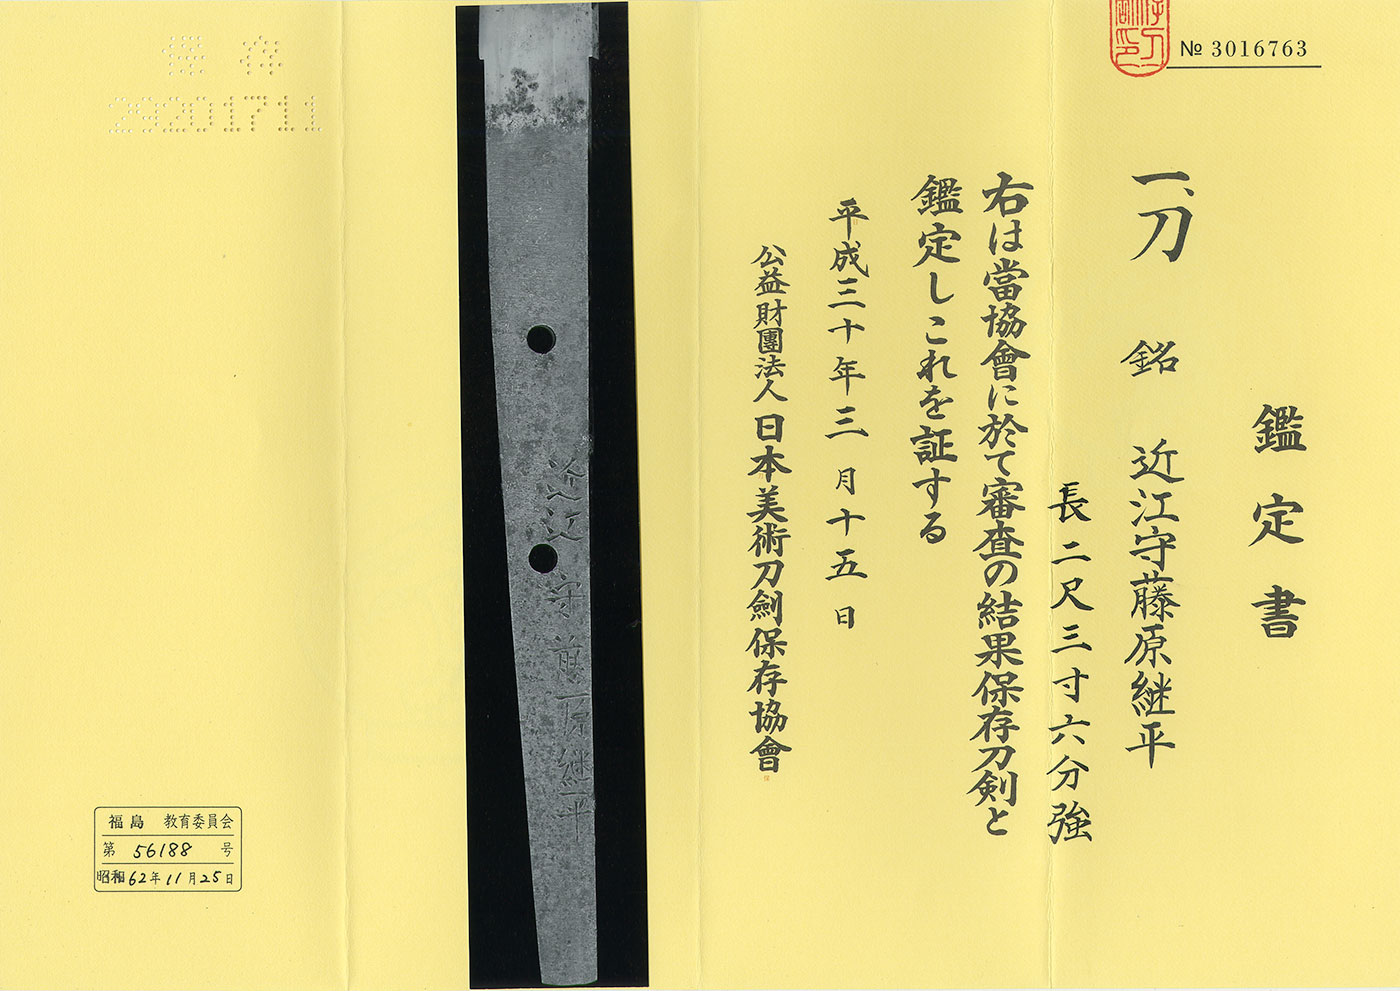 № 3016763
鑑定書
一、刀 銘 近江守藤原継平
長二尺三寸六分強
右は當協會に於て審査の結果保存刀剣と
鑑定しこれを証する
平成三十年三月十五日
公益財團法人日本美術刀劍保存協會
近江守藤原継平
保存
29201711
福島 教育委員会
第 56188 号
昭和62年11月25日